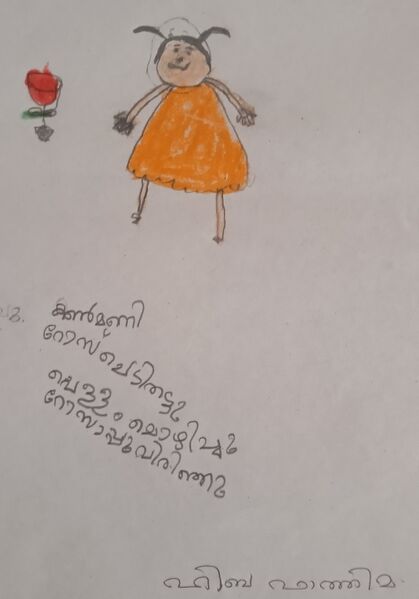 കൺമണി
റോസ് ചെടിനട്ടു
വെള്ളം ഒഴിച്ചു
റോസാപ്പൂവിരിഞ്ഞു
ഹിബ ഫാത്തിമ